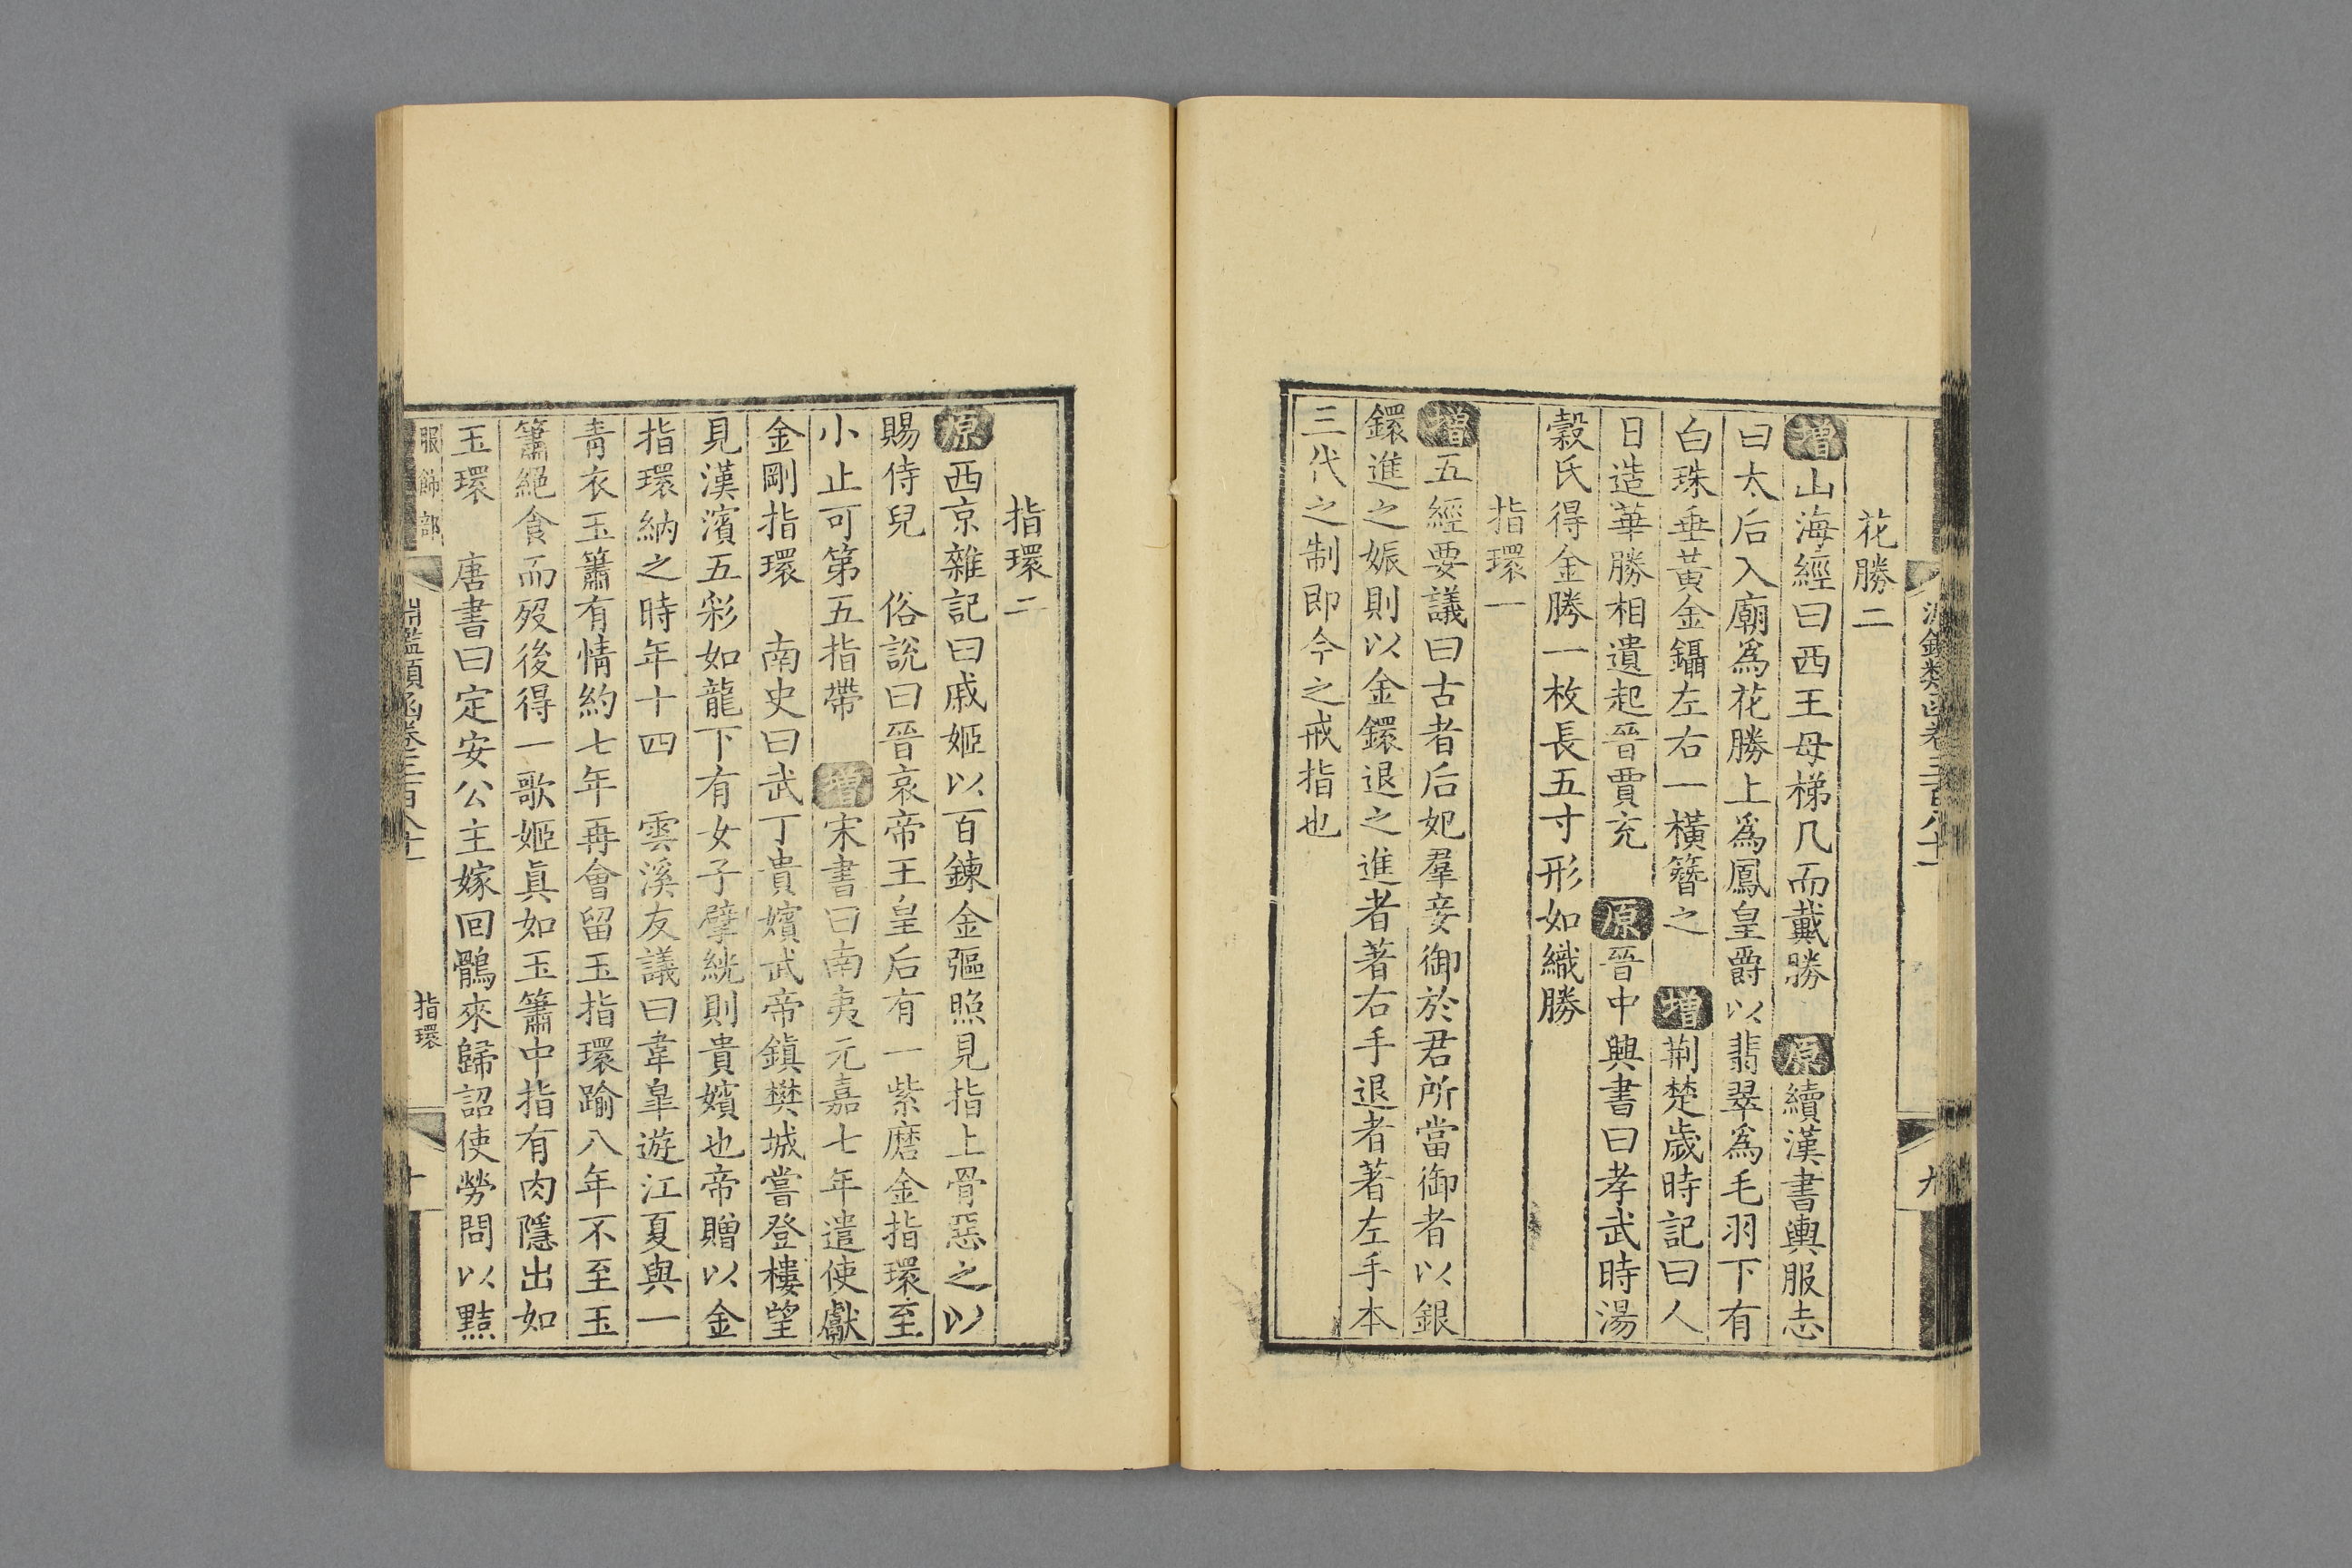 淵鑑類函卷三百八十一
九
花勝二
增山海經曰西王母梯几而戴勝 原續漢書輿服志
曰太后入廟爲花勝上爲鳳皇爵以翡翠爲毛羽下有
白珠垂黃金鑷左右一橫簪之 增荆楚歲時記曰人
日造華勝相遺起晉賈充 原晉中興書曰孝武時湯
穀氏得金勝一枚長五寸形如織勝
指環一
增五經要議曰古者后妃羣妾御於君所當御者以銀
鐶進之娠則以金鐶退之進者著右手退者著左手本
三代之制即今之戒指也
指環二
原西京雜記曰戚姬以百鍊金彄照見指上骨惡之以
賜侍兒 俗說曰晉哀帝王皇后有一紫磨金指環至
小止可第五指帶 增宋書曰南夷元嘉七年遣使獻
金剛指環 南史曰武丁貴嬪武帝鎮樊城嘗登樓望
見漢濱五彩如龍下有女子擘絖則貴嬪也帝贈以金
指環納之時年十四 雲溪友議曰韋皐遊江夏與一
靑衣玉簫有情約七年再會留玉指環踰八年不至玉
簫絕食而歿後得一歌姬眞如玉簫中指有肉隱出如
玉環 唐書曰定安公主嫁回鶻來歸詔使勞問以黠
服飾部
淵鑑類函卷三百八十一
指環
十